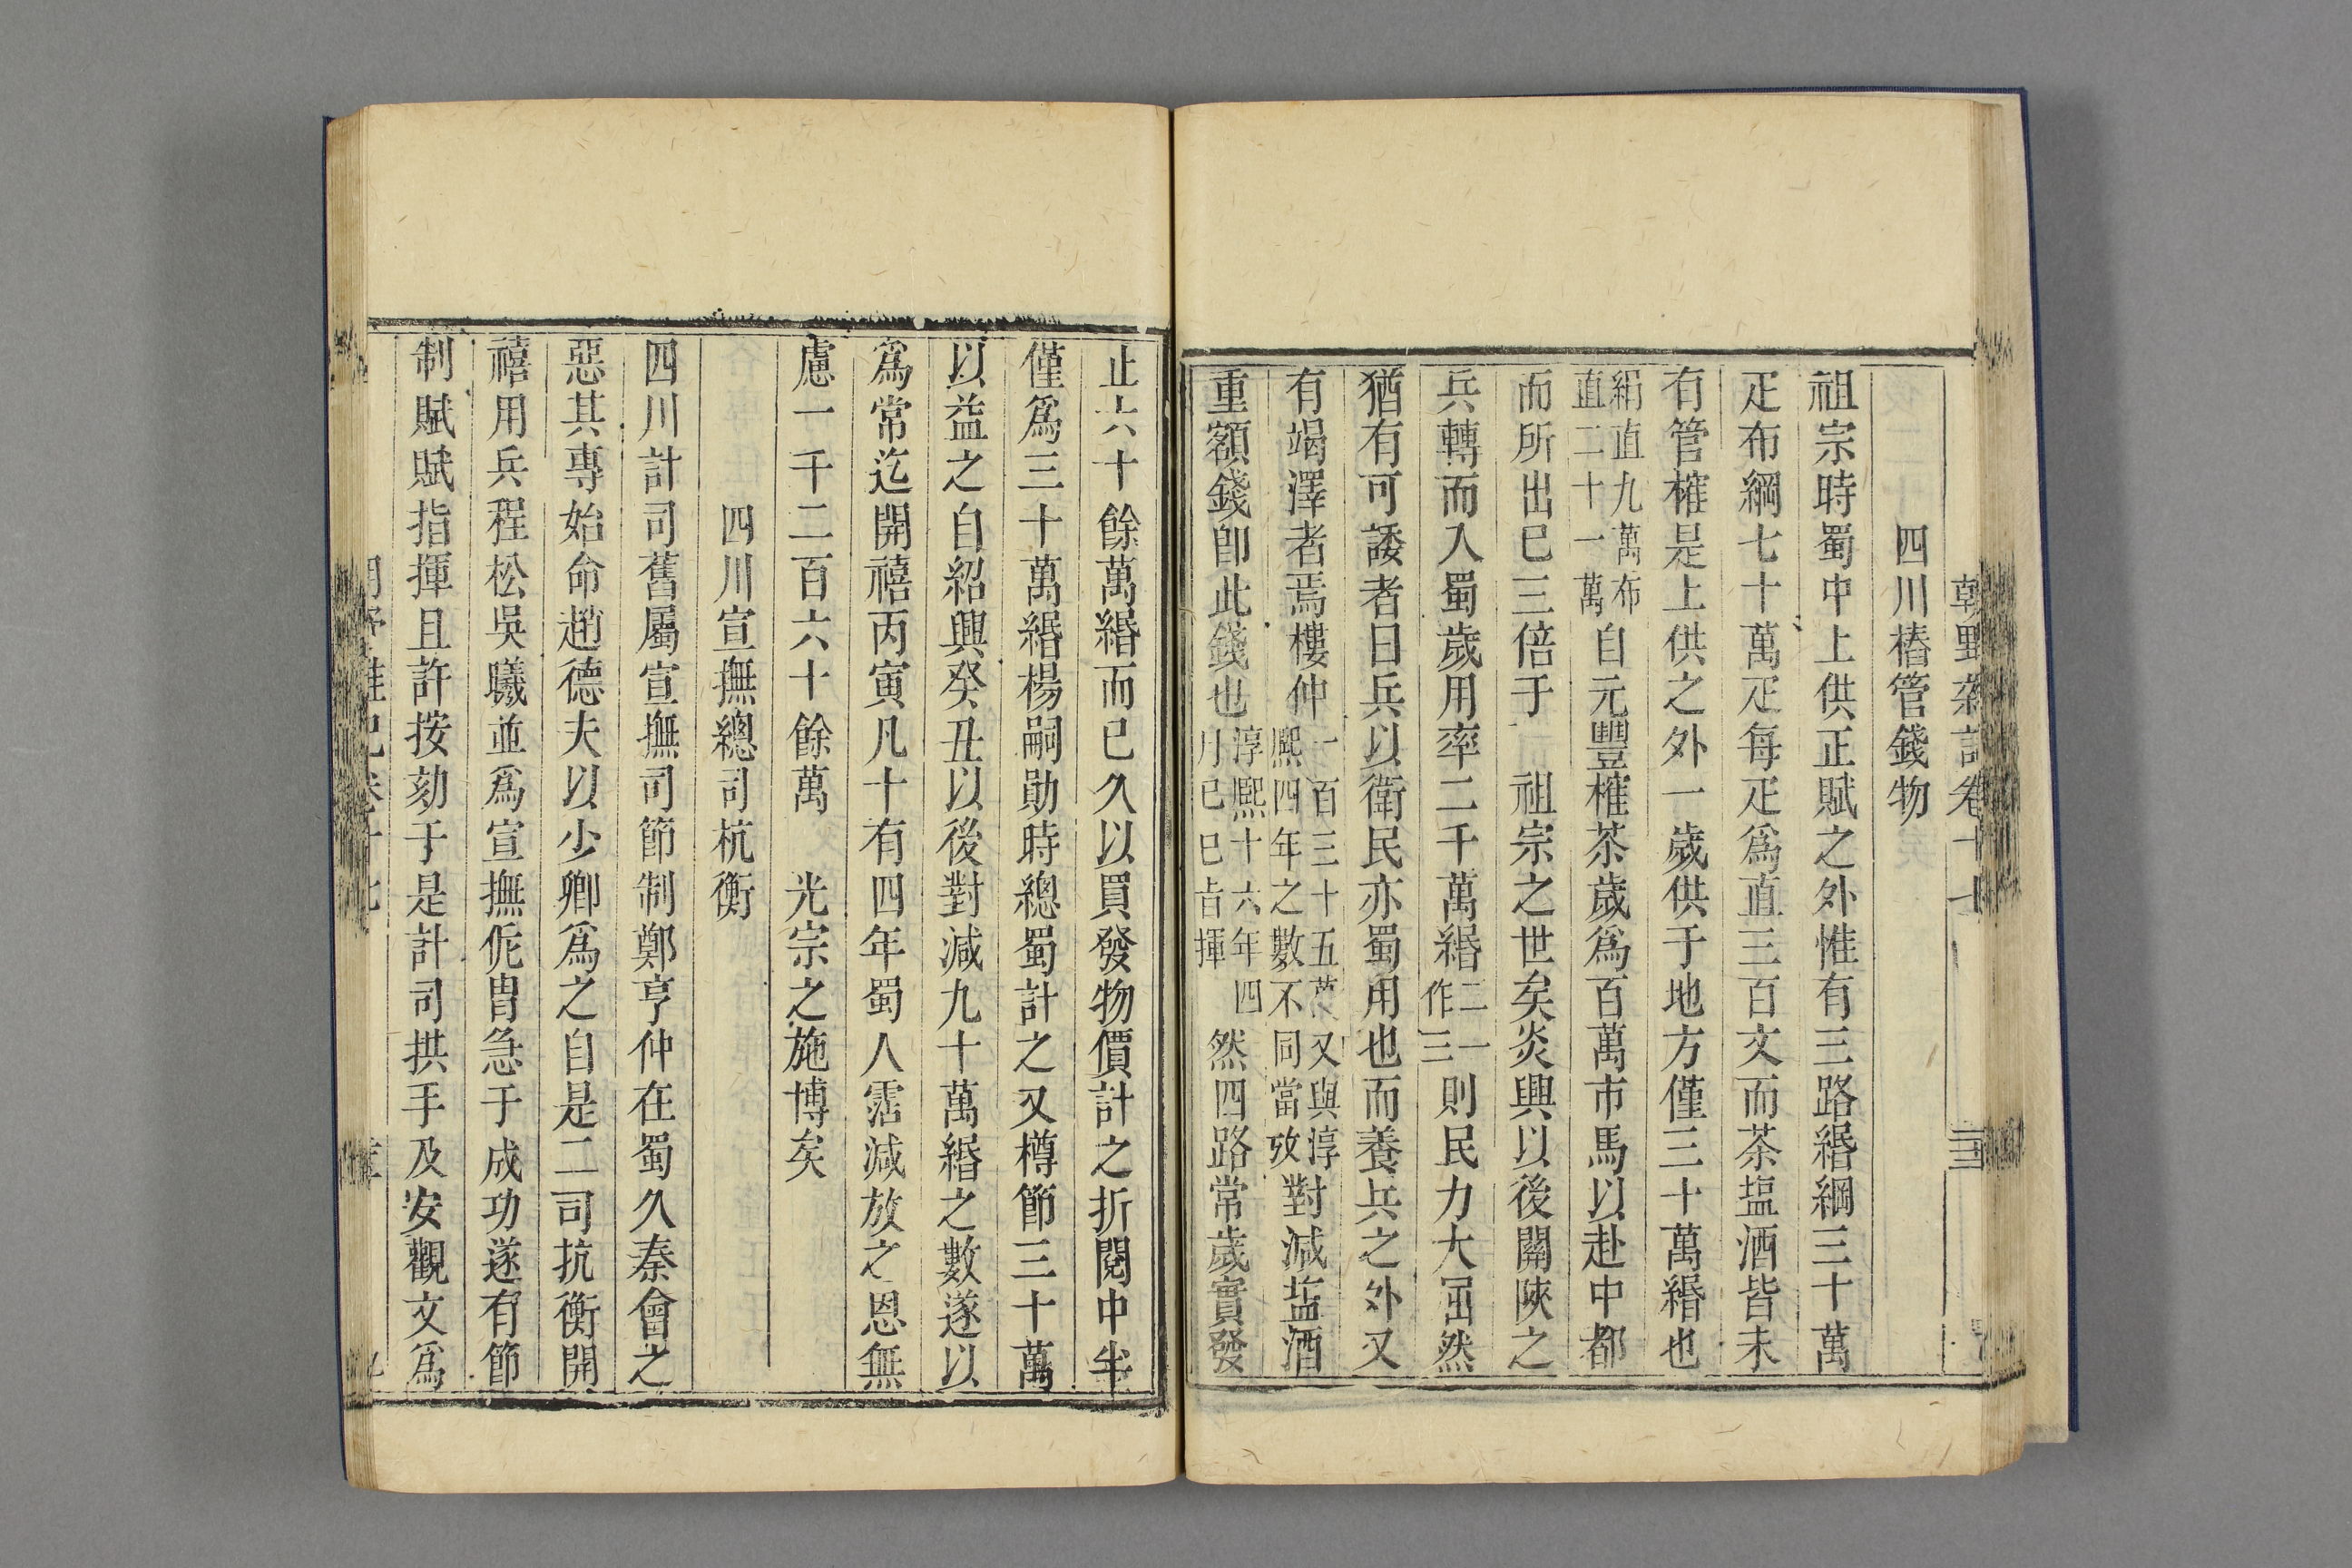 朝野雜記卷十七
四川樁管錢物
祖宗時蜀中上供正賦之外惟有三路緡綱三十萬
疋布綱七十萬疋每疋爲直三百文而茶塩酒皆未
有管榷是上供之外一歲供于地方僅三十萬緡也
絹直九萬布
直二十一萬
自元豐榷茶歲爲百萬市馬以赴中都
而所出已三倍于 祖宗之世矣炎興以後關陝之
兵轉而入蜀歲用率二千萬緡
二一
作三
則民力大屈然
猶有可諉者曰兵以衛民亦蜀用也而養兵之外又
有竭澤者焉樓仲
一百三十五萬又與淳
熈四年之數不同當攷
對減塩酒
重額錢卽此錢也
淳熈十六年四
月己巳㫖揮
然四路常歲實發
止六十餘萬緡而已久以買發物價計之折閱中半
僅爲三十萬緡楊嗣勛時總蜀計之又樽節三十萬
以益之自紹興癸丑以後對減九十萬緡之數遂以
爲常迄開禧丙寅凡十有四年蜀人霑減放之恩無
慮一千二百六十餘萬 光宗之施博矣
四川宣撫總司杭衡
四川計司舊屬宣撫司節制鄭亨仲在蜀久秦會之
惡其專始命趙德夫以少卿爲之自是二司抗衡開
禧用兵程松吳曦並爲宣撫侂冑急于成功遂有節
制賦賦指揮且許按劾于是計司拱手及安觀文爲